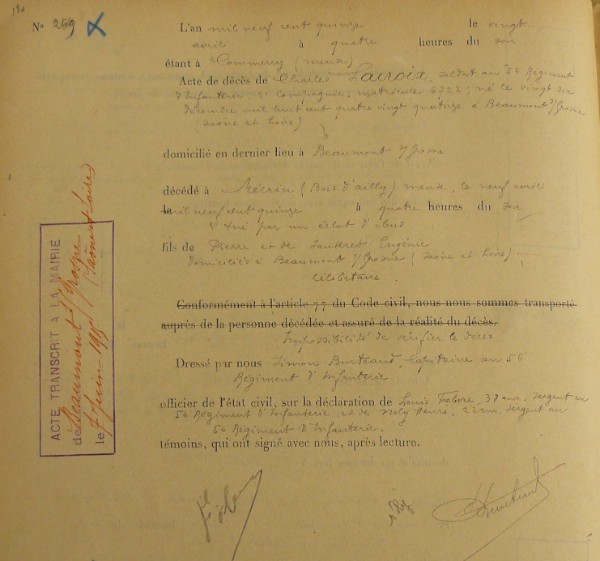 No 259
L'an mil neuf cent quinze le vingt
avril à quatre heures du soir
étant à Commercy (Meuse)
Acte de décès de Charles Lacroix, soldat au 56 Régiment
d'Infanterie, Compagnie; matricule 6323; né le vingt six
décembre mil huit cent quatre vingt quatorze à Beaumont s/Grosne
(Saône et Loire)
domicilié en dernier lieu à Beaumont s/Grosne
décédé à Mécrin (Bois d'ailly) meuse, le neuf avril
mil neuf cent quinze à quatre heures du soir
tué par un éclat d'obus
fils de Pierre et de Eugénie
domiciliés à Beaumont s/Grosne (Saône et Loire)
célibataire.
Conformément à l'article 77 du Code civil, nous nous sommes transporté
auprès de la personne décédée et assuré de la réalité du décès.
Impossibilité de vérifier le décès
Dressé par nous Simon Burteaud, Capitaine au 56
Régiment d'Infanterie
officier de l'état civil, sur la déclaration de Louis Fabre, 37 ans, sergent au
56 Régiment d'Infanterie, et de Pierre, 22 ans, sergent au
56 Régiment d'Infanterie.
témoins, qui ont signé avec nous, après lecture.
ACTE TRANSCRIT A LA MAIRIE
de Beaumont s/Grosne (Saône et Loire)
le 7 juin 1915